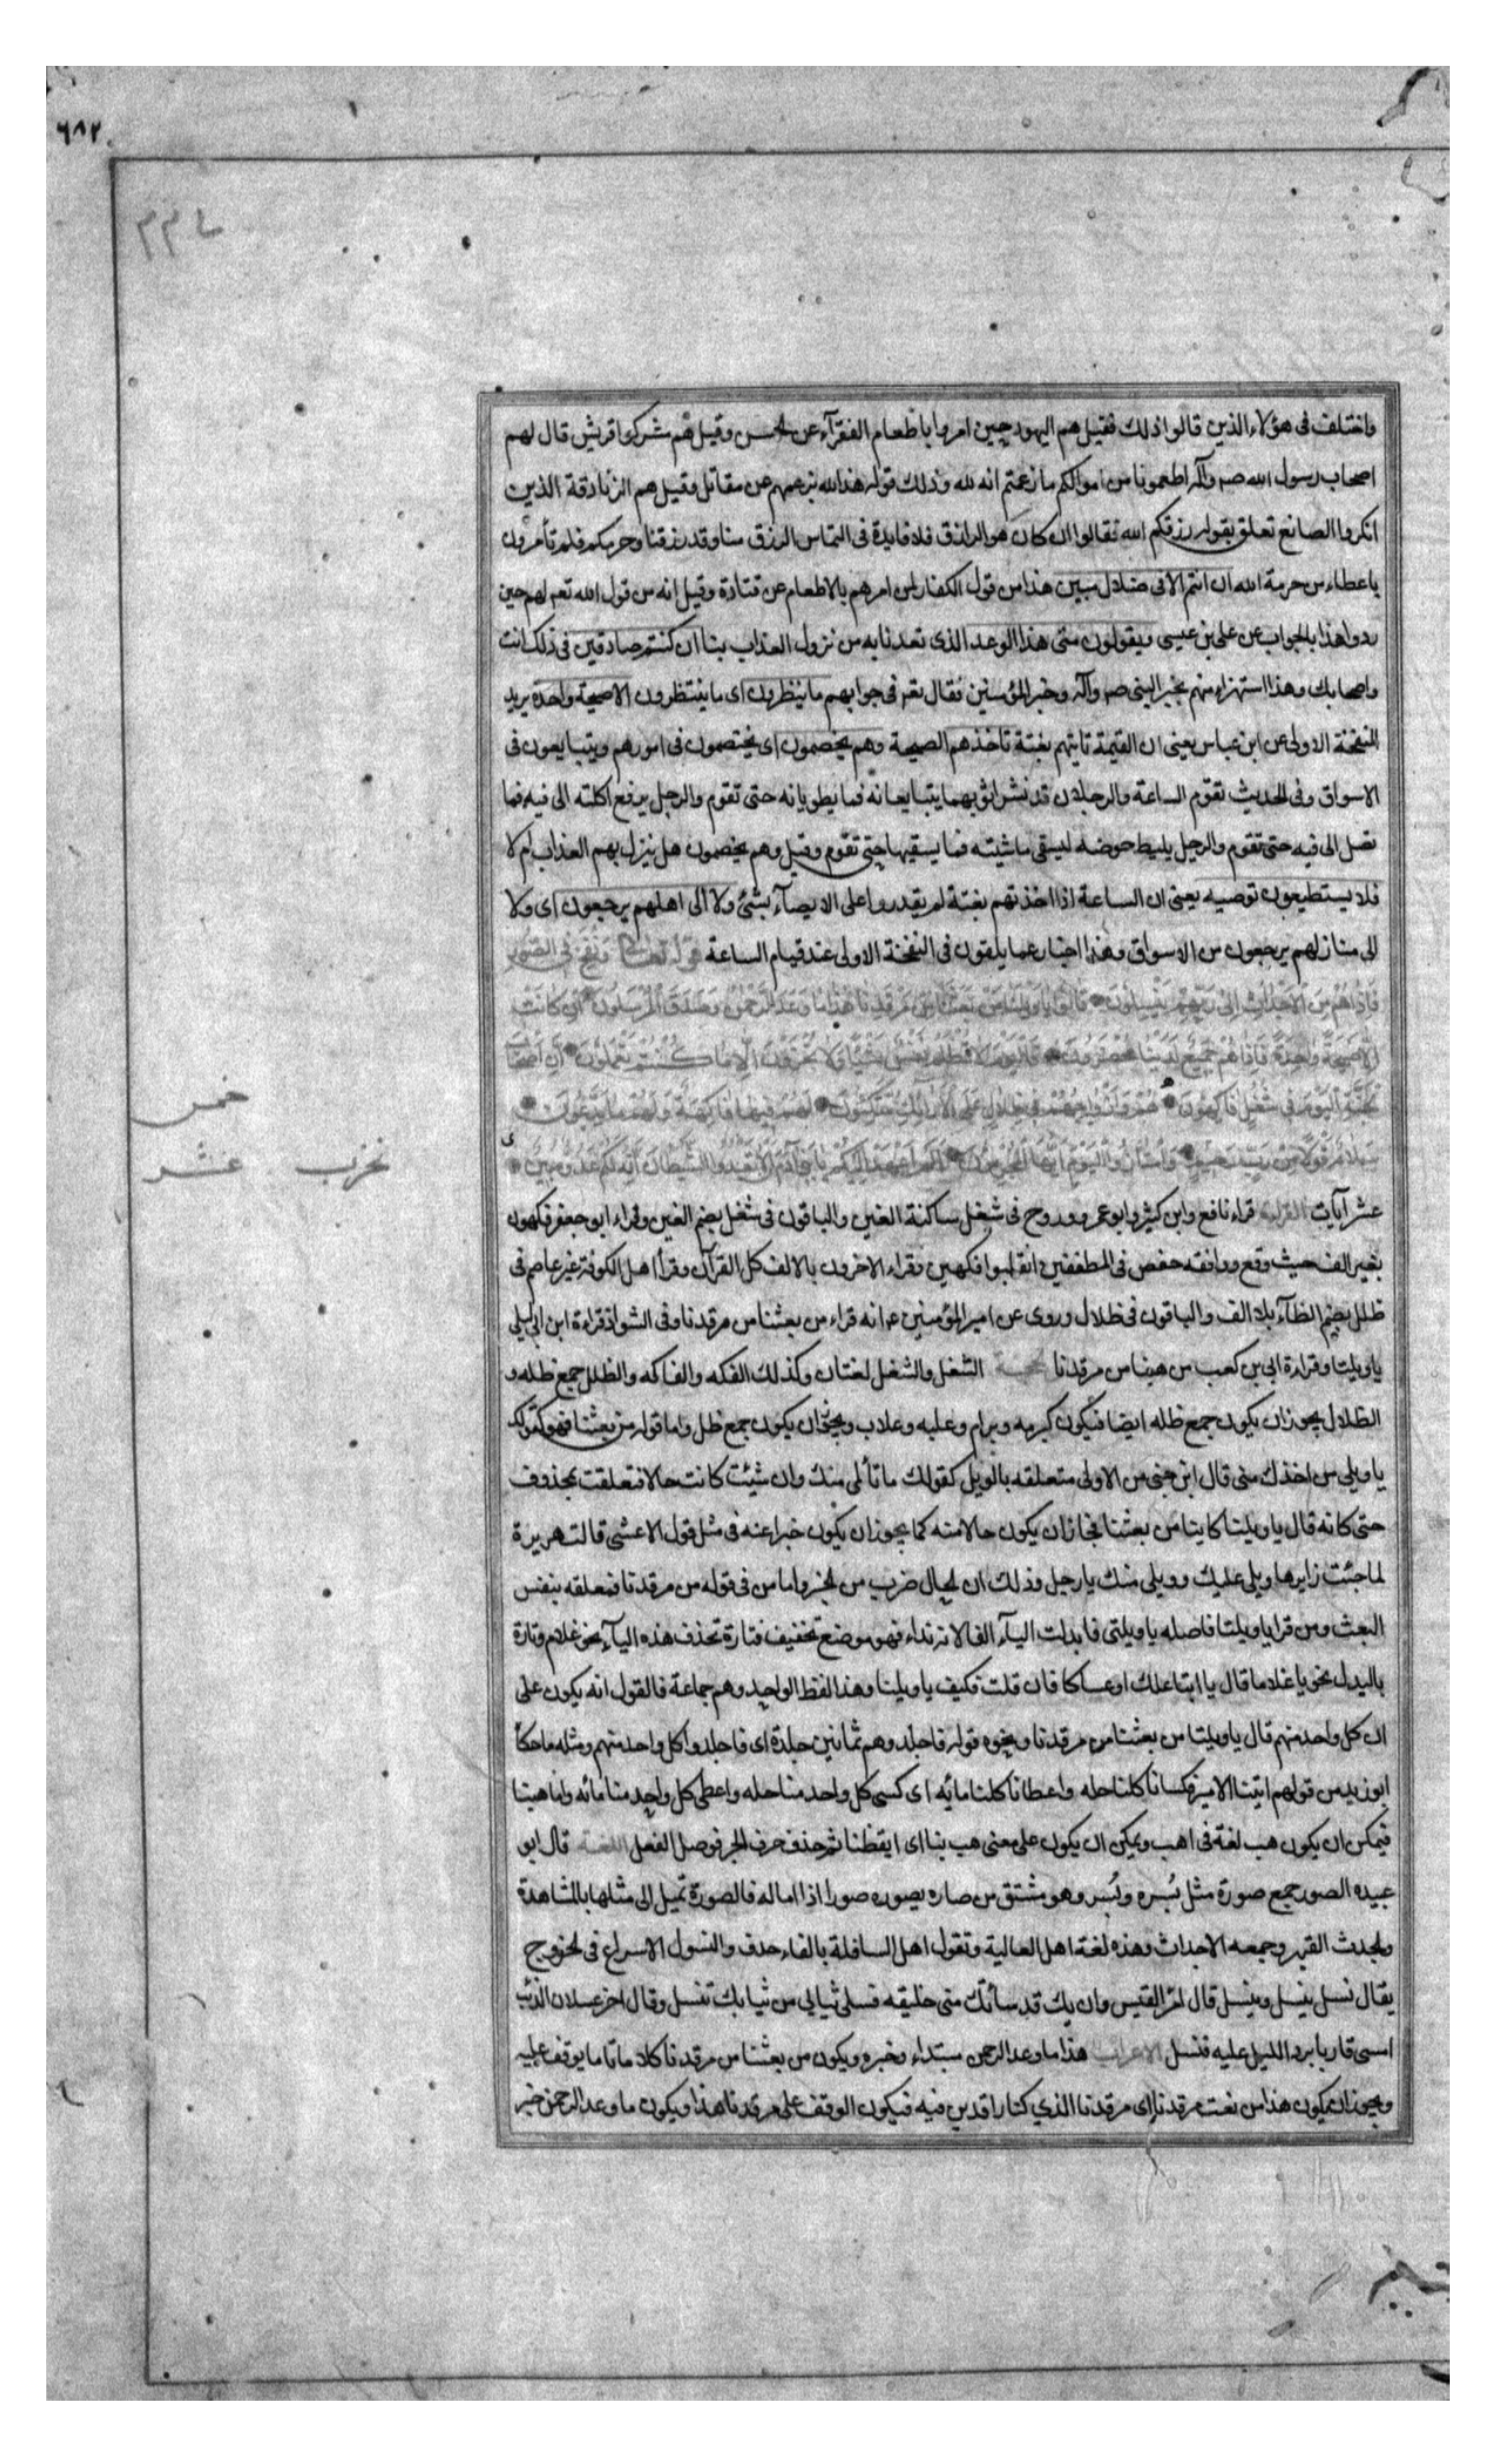 ٦٨٢
واختلف فى هؤلاء الذين قالوا ذلك فقيل هم اليهود حين امروا باطعام الفقرآء عن الحسن وقيل هم مشركوا قريش قال لهم
اصحاب رسول الله صه وآله اطعمونا من اموالكم ما زعمتم انه لله وذلك قوله هذا لله بزعمهم عن مقاتل وقيل هم الزنادقة الذين
انكروا الصانع تعلق بقوله رزقكم الله فقالوا ان كان هو الرازق فلا فايدة فى التماس الرزق منا وقد رزقنا وحرمكم فلم تأمرون
باعطاء من حرمة الله ان انتم الا فى ضلال مبين هذا من قول الكفار لمن امرهم بالاطعام عن قتادة وقيل انه من قول الله تعم لهم حين
ردوا هذا بالجواب عن على بن عيسى ويقولون متى هذا الوعد الذى تعدنا به من نزول العذاب بنا ان كنتم صادقين فى ذلك انت
واصحابك وهذا استهزاء منهم بخبر النبى صه وآله وخبر المؤمنين فقال تعه فى جوابهم ما ينظرون اى ما ينتظرون الا صيحة واحدة يريد
النفخة الاولى عن ابن عباس يعنى ان القيمة تاتيهم بغتة تاخذهم الصيحة وهم يخصمون اى يختصمون فى امورهم ويتبايعون فى
الاسواق وفى الحديث تقوم الساعة والرجلان قد نشرا ثوبهما يتبايعانه فما يطويانه حتى تقوم والرجل يرفع اكلته الى فيه فما
تصل الى فيه حتى تقوم والرجل يليط حوضه ليسقى ماشيته فما يسقيها حتى تقوم وقيل وهم يخصمون هل ينزل بهم العذاب ام لا
فلا يستطيعون توصيه يعنى ان الساعة اذا اخذتهم بغتة لم يقدروا على الايصآء بشئ ولا الى اهلهم يرجعون اى ولا
الى منازلهم يرجعون من الاسواق وهذا اخبار عما يلقون فى النفخة الاولى عند قيام الساعة قوله تعالى وَنُفِخَ فِى الصُّورِ
فَاِذَا هُمْ مِنَ الْاَجْدَاثِ اِلَى رَبِّهِمْ يَنْسِلُونَ قَالُوا يَا وَيْلَنَا مَنْ بَعَثَنَا مِنْ مَرْقَدِنَا هٰذَا مَا وَعَدَ الرَّحْمٰنُ وَصَدَقَ الْمُرْسَلُونَ اِنْ كَانَتْ
اِلَّا صَيْحَةً وَاحِدَةً فَاِذَا هُمْ جَمِيعٌ لَدَيْنَا مُحْضَرُونَ فَالْيَوْمَ لَا تُظْلَمُ نَفْسٌ شَيْئًا وَلَا تُجْزَوْنَ اِلَّا مَا كُنْتُمْ تَعْمَلُونَ اِنَّ اَصْحَابَ
الْجَنَّةِ الْيَوْمَ فِى شُغُلٍ فَاكِهُونَ هُمْ وَاَزْوَاجُهُمْ فِى ظِلَالٍ عَلَى الْاَرَآئِكِ مُتَّكِئُونَ لَهُمْ فِيهَا فَاكِهَةٌ وَلَهُمْ مَا يَدَّعُونَ
سَلَامٌ قَوْلًا مِنْ رَبٍّ رَحِيمٍ وَامْتَازُوا الْيَوْمَ اَيُّهَا الْمُجْرِمُونَ اَلَمْ اَعْهَدْ اِلَيْكُمْ يَا بَنِى آدَمَ اَنْ لَا تَعْبُدُوا الشَّيْطَانَ اِنَّهُ لَكُمْ عَدُوٌّ مُبِينٌ
خمس
عشر
عشر آيات القراءة قراء نافع وابن كثير وابو عمرو وروح فى شغل ساكنة الغين والباقون فى شغل بضم الغين وقراء ابو جعفر فكهون
بغير الف حيث وقع ووافقه حفص فى المطففين انقلبوا فكهين وقراء الاخرون بالالف كل القرآن وقرأ اهل الكوفة غير عاصم فى
ظلل بضم الظآء بلا الف والباقون فى ظلال وروى عن امير المؤمنين عه انه قراء من بعثنا من مرقدنا وفى الشواذ قراءة ابن ابى ليلى
يا ويلتا وقراءة ابى بن كعب من هبنا من مرقدنا الحجة الشغل والشغل لغتان وكذلك الفكه والفاكه والظلل جمع ظله و
الظلال يجوز ان يكون جمع ظله ايضا فيكون كبرمه وبرام وعلبه وعلاب ويجوز ان يكون جمع ظل واما قوله من بعثنا فهو كقولك
يا ويلى من اخذك منى قال ابن جنى من الاولى متعلقه بالويل كقولك ما تألمى منك وان شئت كانت حالا فتعلقت بمحذوف
حتى كانه قال يا ويلتا كاينا من بعثنا فجاز ان يكون حالا منه كما يجوز ان يكون خبرا عنه فى مثل قول الاعشى قالت هريرة
لما جئت زايرها ويلى عليك وويلى منك يا رجل وذلك ان الحال ضرب من الخبر واما من فى قوله من مرقدنا فمتعلقه بنفس
البعث ومن قرا يا ويلتا فاصله يا ويلتى فابدلت اليآء الفا لانه نداء فهو موضع تخفيف فتارة تحذف هذه اليآء نحو غلام وتارة
بالبدل نحو يا غلاما قال يا ابتا علك او عساكا فان قلت فكيف يا ويلتا وهذا لفظ الواحد وهم جماعة فالقول انه يكون على
ان كل واحد منهم قال يا ويلتا من بعثنا من مرقدنا ونحوه قوله فاجلدوهم ثمانين جلدة اى فاجلدوا كل واحد منهم ومثله ما حكا
ابو زيد من قولهم اتينا الامير فكسانا كلنا حله واعطانا كلنا مائه اى كسى كل واحد منا حله واعطى كل واحد منا مائه واما هبنا
فيمكن ان يكون هب لغة فى اهب ويمكن ان يكون على معنى هب بنا اى ايقظنا ثم حذف حرف الجر فوصل الفعل اللغة قال ابو
عبيده الصور جمع صورة مثل بُسره وبُسر وهو مشتق من صاره يصوره صورا اذا اماله فالصورة تميل الى مثلها بالمشاهدة
والجدث القبر وجمعه الاجداث وهذه لغة اهل العالية وتقول اهل السافلة بالفاء جدف والنسول الاسراع فى الخروج
يقال نسل ينسل وينسل قال امرؤ القيس وان يك قد سأتك منى خليقه فسلى ثيابى من ثيابك تنسل وقال اخر عسلان الذئب
امسى قاربا برد الليل عليه فنسل الاعراب هذا ما وعد الرحمن مبتداء وخبره ويكون من بعثنا من مرقدنا كلاما تاما يوقف عليه
ويجوز ان يكون هذا من نعت مرقدنا اى مرقدنا الذى كنا راقدين فيه فيكون الوقف على مرقدنا هذا ويكون ما وعد الرحمن خبر